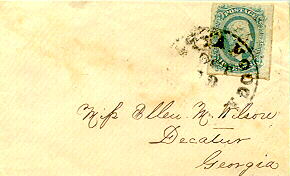 POSTAGE
Miss Ellen M. Wilson
Decatur
Georgia